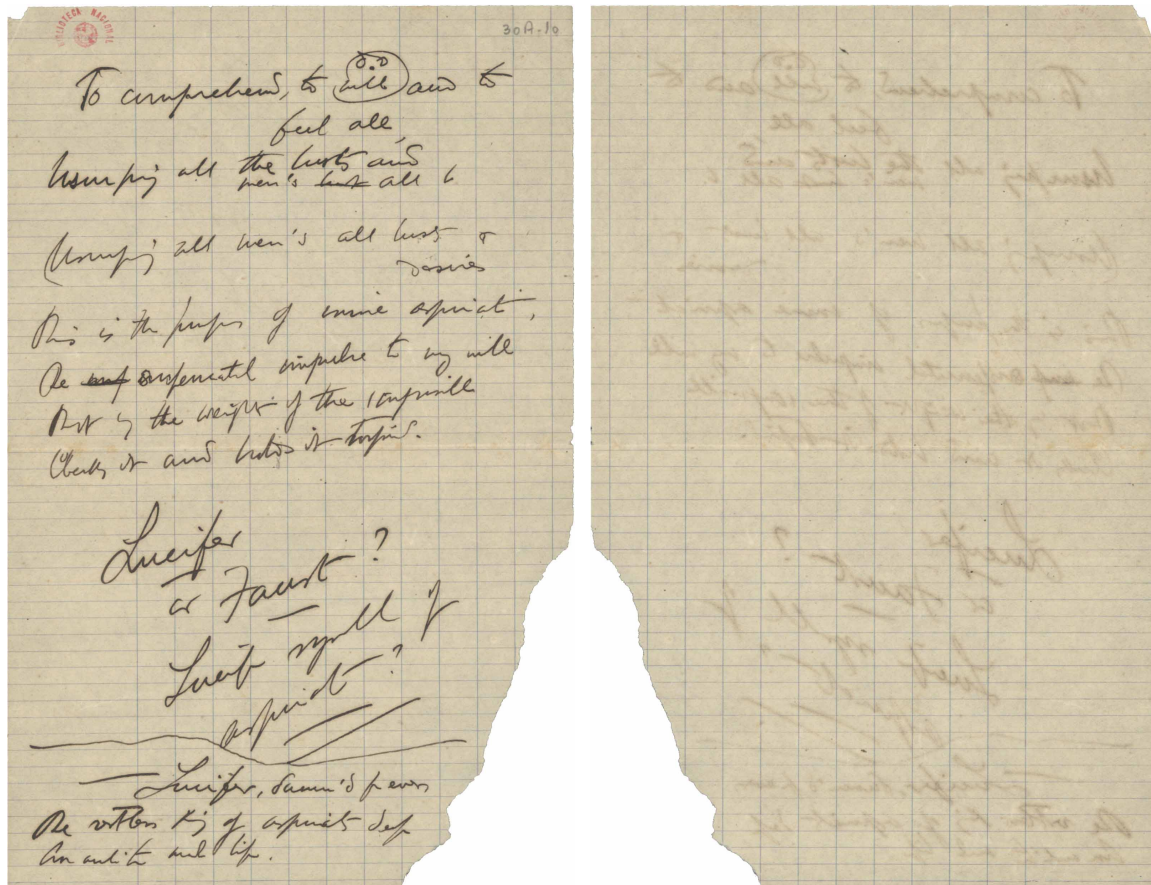 BIBLIOTECA NACIONAL
30A-10
To comprehend, to will and to
feel all,
Usurping all the lusts and
men's lust all
(Usurping all men's all lusts &
desires
This is the of mine aspirat,
The impulse to my will
But by the weight of the impossible
Checks it and holds it torpid.
Lucifer
or Faust?
Lucifer symbol of
aspirat?
Lucifer, damn'd for ever
The restless King of aspirat deep